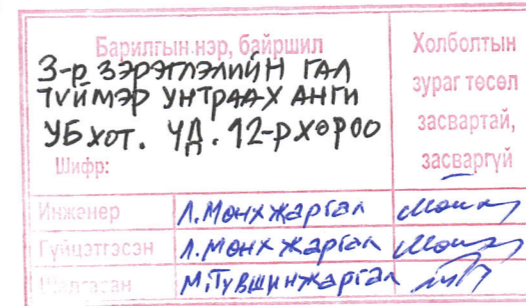 Барилгын нэр, байршил
3-р зэрэглэлийн гал
түймэр унтраах анги
УБ хот. ЧД. 12-р хороо
Шифр:
Холболтын
зураг төсөл
засвартай,
засваргүй
Инженер Л.Мөнхжаргал
Гүйцэтгэсэн Л.Мөнхжаргал
Шалгасан М.Түвшинжаргал